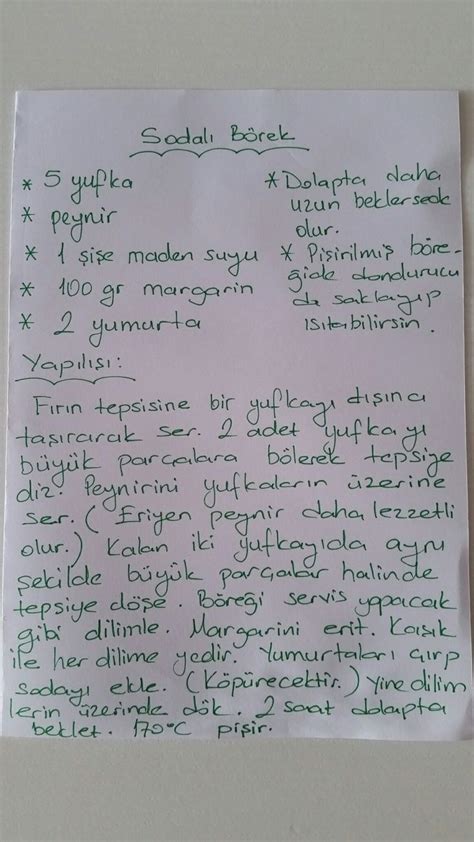 Sodalı Börek
* 5 yufka
* peynir
* 1 şişe maden suyu
* 100 gr margarin
* 2 yumurta
* Dolapta daha
uzun beklersede
olur.
* Pişirilmiş böre-
ğide dondurucu
da saklayıp
ısıtabilirsin.
Yapılışı:
Fırın tepsisine bir yufkayı dışına
taşırarak ser. 2 adet yufkayı
büyük parçalara bölerek tepsiye
diz. Peynirini yufkaların üzerine
ser. (Eriyen peynir daha lezzetli
olur.) Kalan iki yufkayıda aynı
şekilde büyük parçalar halinde
tepsiye döşe. Böreği servis yapacak
gibi dilimle. Margarini erit. Kaşık
ile her dilime yedir. Yumurtaları çırp
sodayı ekle. (Köpürecektir.) Yine dilim
lerin üzerinde dök. 2 saat dolapta
beklet. 170°C pişir.